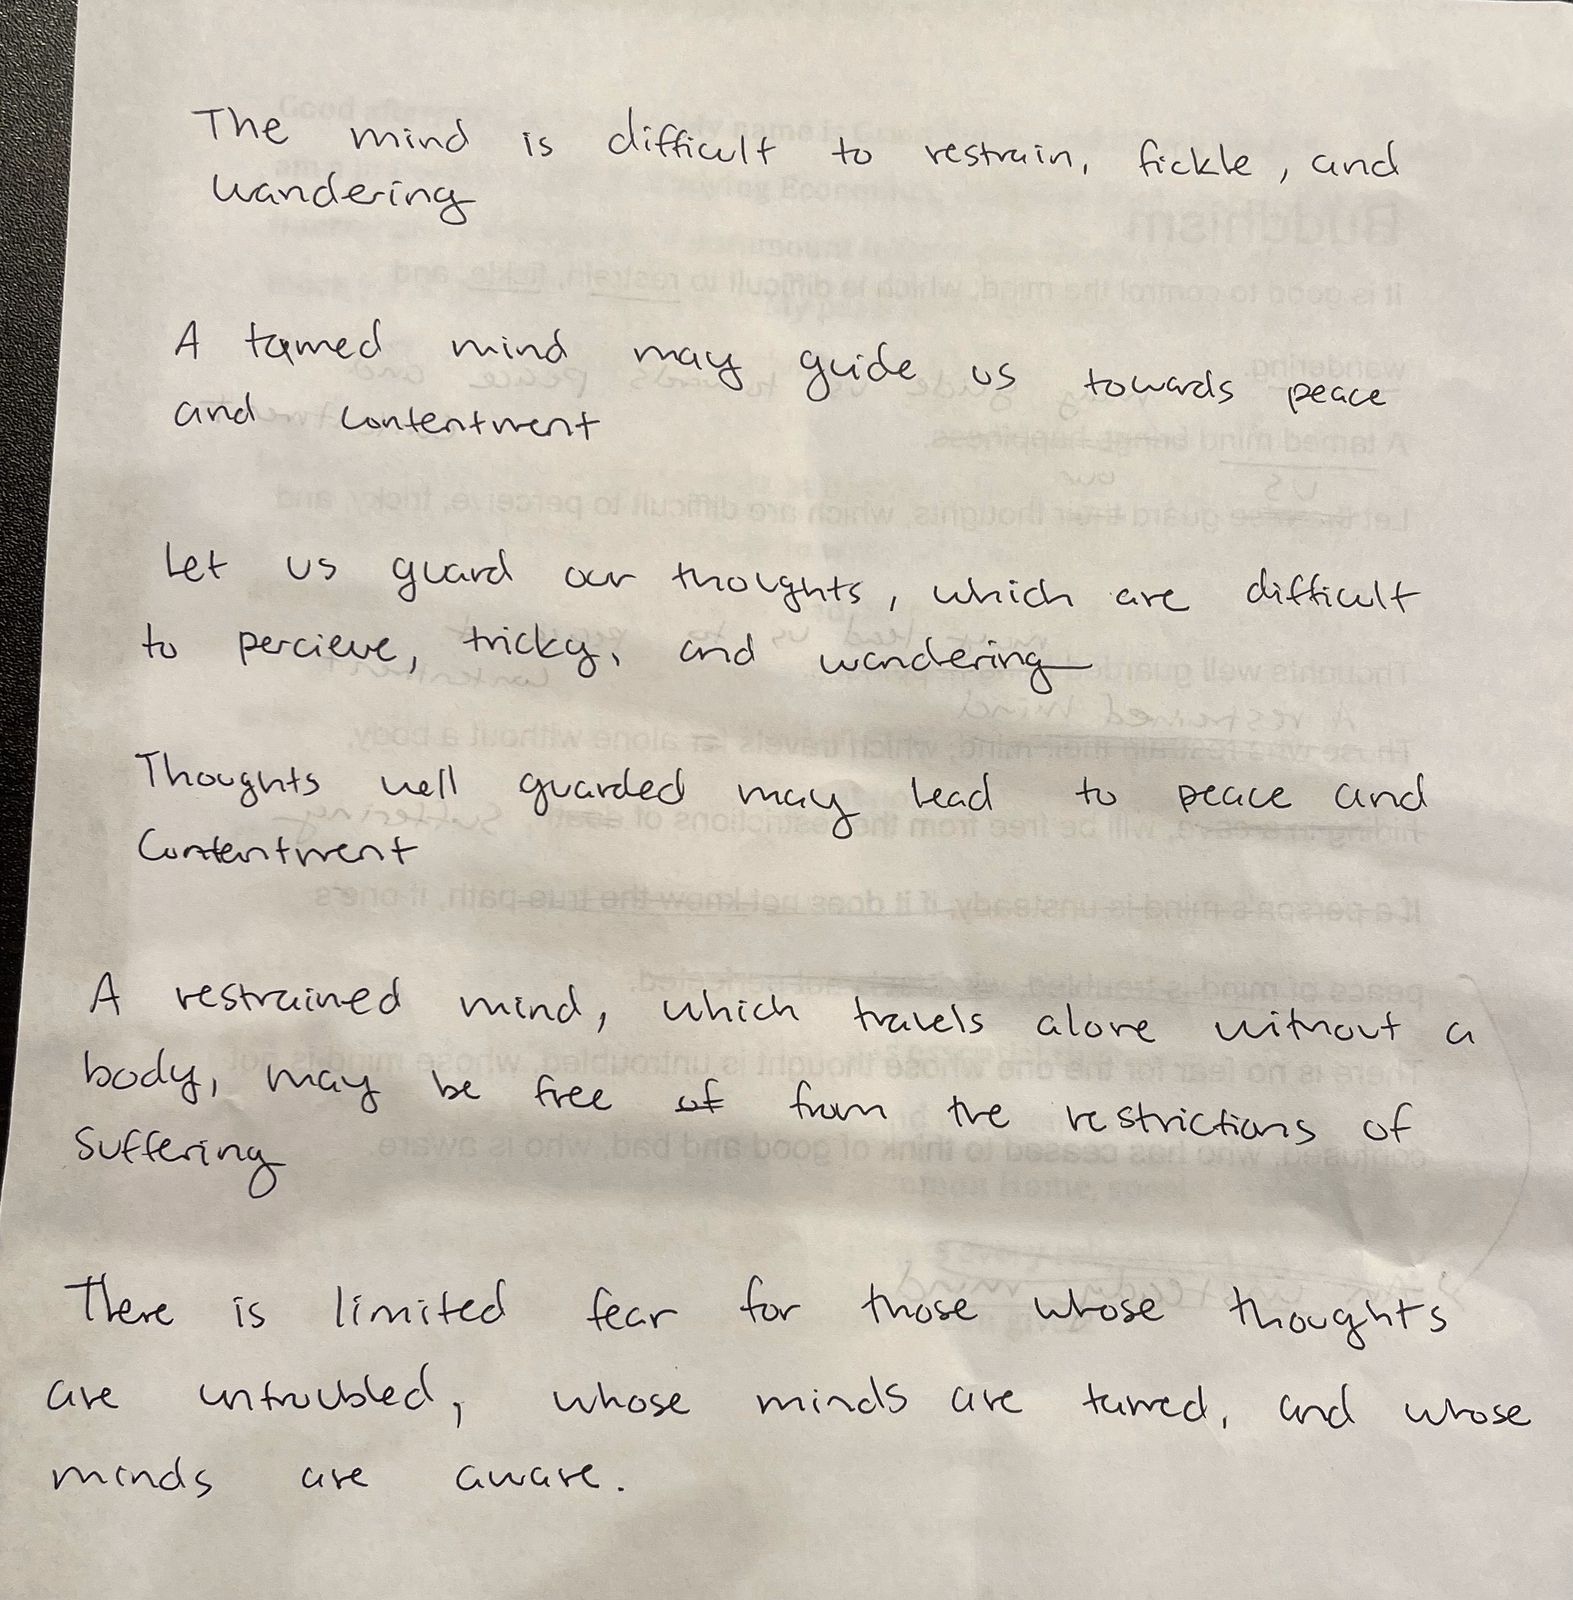 The mind is difficult to restrain, fickle, and
wandering
A tamed mind may guide us towards peace
and contentment
Let us guard our thoughts, which are difficult
to percieve, tricky, and wandering
Thoughts well guarded may lead to peace and
Contentment
A restrained mind, which travels alone without a
body, may be free of from the restrictions of
Suffering
There is limited fear for those whose thoughts
are untroubled, whose minds are tamed, and whose
minds are aware.